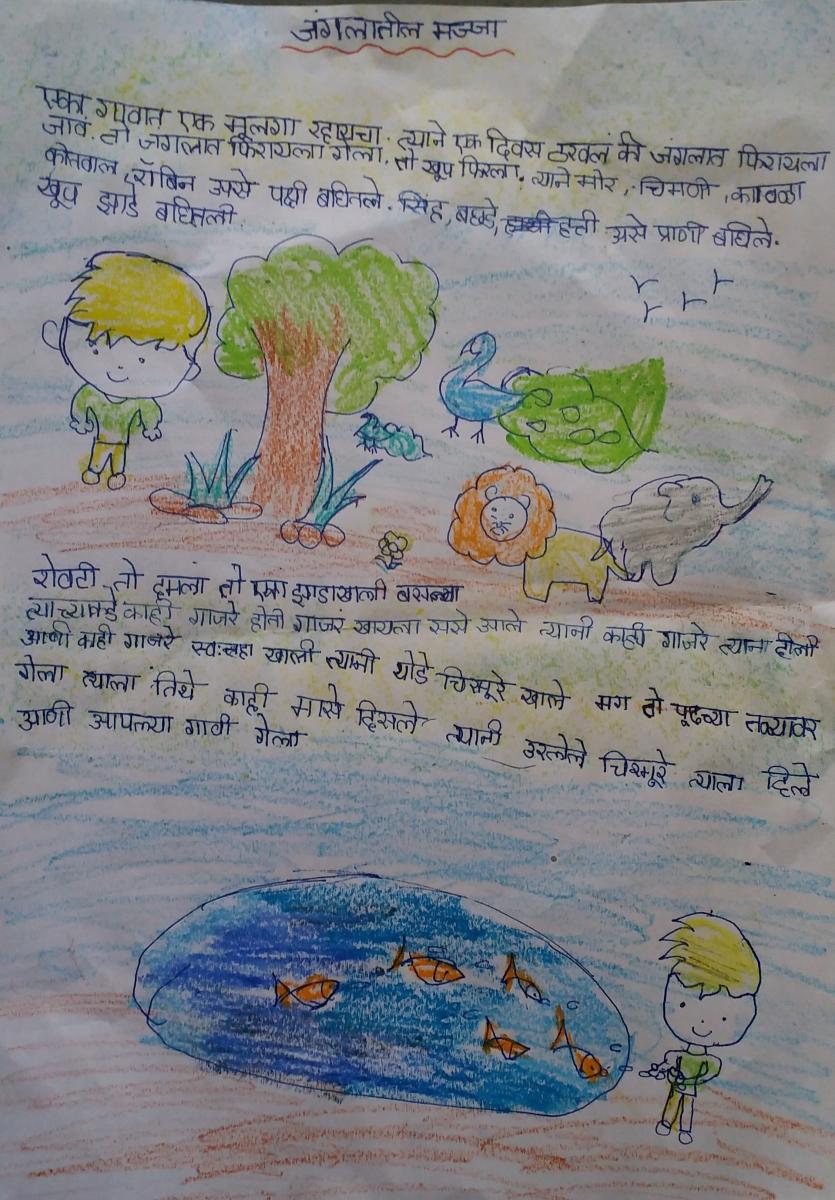 जंगलातील मज्जा
एका गावात एक मूलगा रहायचा. त्याने एक दिवस ठरवलं की जंगलात फिरायला
जावं. तो जंगलात फिरायला गेला. तो खूप फिरला. त्याने मोर, चिमणी, कावळा
कोतवाल, रॉबिन असे पक्षी बघितले. सिंह, बघडे, हत्ती असे प्राणी बघिले.
खूप झाडे बघितली
शेवटी तो दमला तो एका झाडाखाली बसला
त्याच्याकडे काही गाजरे होती गाजरं खायला ससे आले त्यानी काही गाजरे त्याना दीली
आणी काही गाजरे स्वःतहा खाली त्यानी थोडे चिरमूरे खाले मग तो पूढच्या तळ्यावर
गेला त्याला तिथे काही मासे दिसले त्यानी उरलेले चिरमूरे त्याला दिले
आणी आपल्या गावी गेला